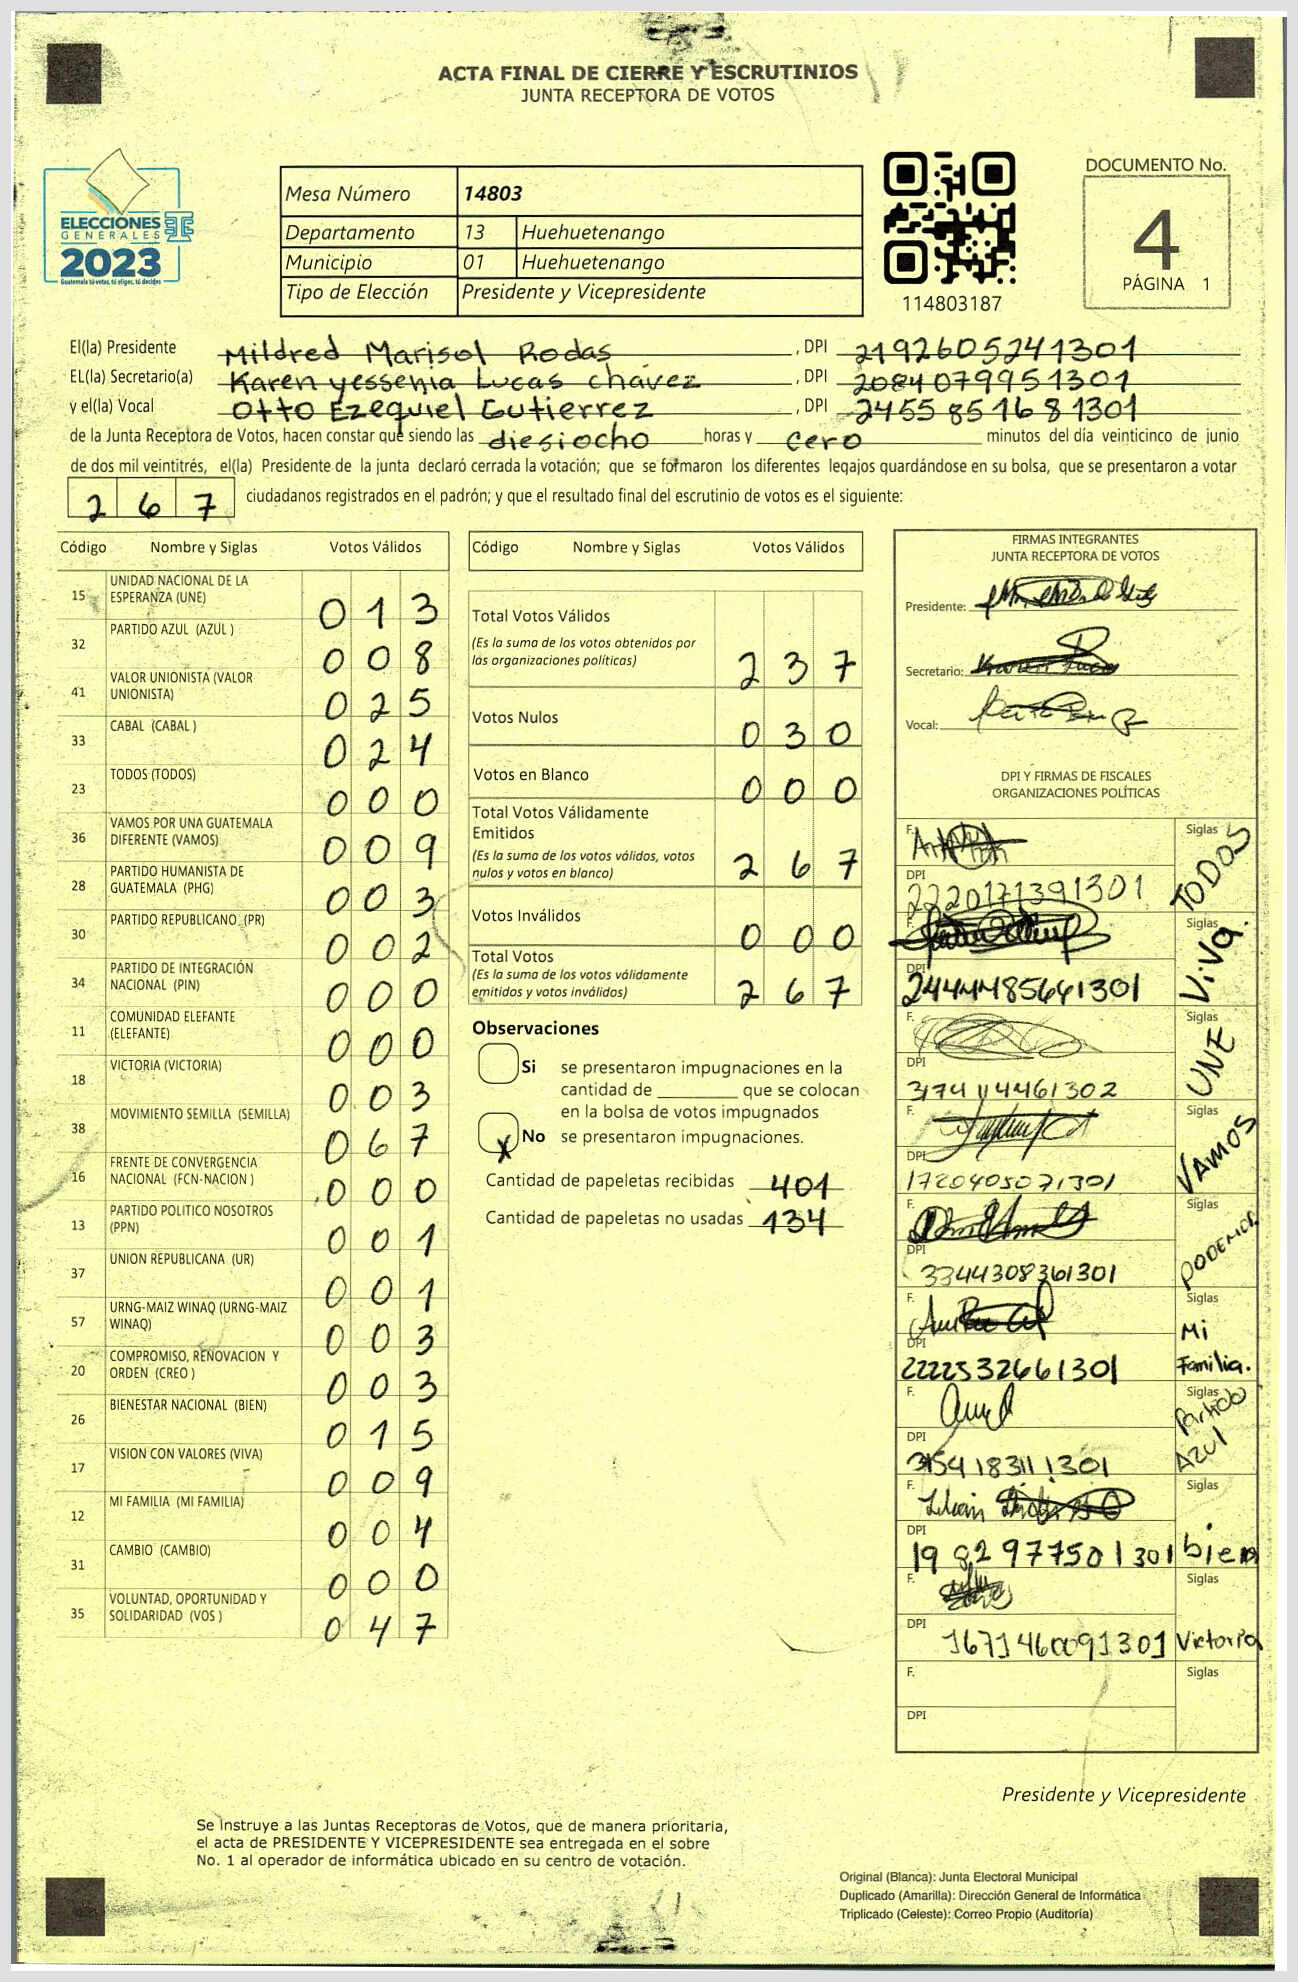 ACTA FINAL DE CIERRE Y ESCRUTINIOS
JUNTA RECEPTORA DE VOTOS
ELECCIONES
GENERALES
2023
Guatemala tú votas, tú eliges, tú decides
Mesa Número 14803
Departamento 13 Huehuetenango
Municipio 01 Huehuetenango
Tipo de Elección Presidente y Vicepresidente
114803187
DOCUMENTO No.
4
PÁGINA 1
El(la) Presidente Mildred Marisol Rodas, DPI 2192605241301
EL(la) Secretario(a) Karen yessenia Lucas chávez, DPI 2084079951301
y el(la) Vocal Otto Ezequiel Gutierrez, DPI 2455851681301
de la Junta Receptora de Votos, hacen constar que siendo las diesiocho horas y cero minutos del día veinticinco de junio
de dos mil veintitrés, el(la) Presidente de la junta declaró cerrada la votación; que se formaron los diferentes legajos quardándose en su bolsa, que se presentaron a votar
267 ciudadanos registrados en el padrón; y que el resultado final del escrutinio de votos es el siguiente:
Código Nombre y Siglas Votos Válidos
15 UNIDAD NACIONAL DE LA ESPERANZA (UNE) 013
32 PARTIDO AZUL (AZUL ) 008
41 VALOR UNIONISTA (VALOR UNIONISTA) 025
33 CABAL (CABAL ) 024
23 TODOS (TODOS) 000
36 VAMOS POR UNA GUATEMALA DIFERENTE (VAMOS) 009
28 PARTIDO HUMANISTA DE GUATEMALA (PHG) 003
30 PARTIDO REPUBLICANO (PR) 002
34 PARTIDO DE INTEGRACIÓN NACIONAL (PIN) 000
11 COMUNIDAD ELEFANTE (ELEFANTE) 000
18 VICTORIA (VICTORIA) 003
38 MOVIMIENTO SEMILLA (SEMILLA) 067
16 FRENTE DE CONVERGENCIA NACIONAL (FCN-NACION ) 000
13 PARTIDO POLITICO NOSOTROS (PPN) 001
37 UNION REPUBLICANA (UR) 001
57 URNG-MAIZ WINAQ (URNG-MAIZ WINAQ) 003
20 COMPROMISO, RENOVACION Y ORDEN (CREO ) 003
26 BIENESTAR NACIONAL (BIEN) 015
17 VISION CON VALORES (VIVA) 009
12 MI FAMILIA (MI FAMILIA) 004
31 CAMBIO (CAMBIO) 000
35 VOLUNTAD, OPORTUNIDAD Y SOLIDARIDAD (VOS ) 047
Código Nombre y Siglas Votos Válidos
Total Votos Válidos
(Es la suma de los votos obtenidos por
las organizaciones políticas) 237
Votos Nulos 030
Votos en Blanco 000
Total Votos Válidamente
Emitidos
(Es la suma de los votos válidos, votos
nulos y votos en blanco) 267
Votos Inválidos 000
Total Votos
(Es la suma de los votos válidamente
emitidos y votos inválidos) 267
Observaciones
Si se presentaron impugnaciones en la
cantidad de ________ que se colocan
en la bolsa de votos impugnados
X No se presentaron impugnaciones.
Cantidad de papeletas recibidas 401
Cantidad de papeletas no usadas 134
FIRMAS INTEGRANTES
JUNTA RECEPTORA DE VOTOS
Presidente:
Secretario:
Vocal:
DPI Y FIRMAS DE FISCALES
ORGANIZACIONES POLÍTICAS
F. Siglas TODOS
DPI 2220171391301
F. Siglas ViVa.
DPI
F. Siglas UNE
DPI 3174114461302
F. Siglas VAMOS
DPI 1720405071301
F. Siglas PODEMOS
DPI 3344308361301
F. Siglas Mi Familia.
DPI 2222532661301
F. Siglas Partido AZUL
DPI
F. Siglas bien
DPI 1982977501301
F. Siglas Victoria
DPI 1671460091301
F. Siglas
DPI
Presidente y Vicepresidente
Se instruye a las Juntas Receptoras de Votos, que de manera prioritaria,
el acta de PRESIDENTE Y VICEPRESIDENTE sea entregada en el sobre
No. 1 al operador de informática ubicado en su centro de votación.
Original (Blanca): Junta Electoral Municipal
Duplicado (Amarilla): Dirección General de Informática
Triplicado (Celeste): Correo Propio (Auditoría)